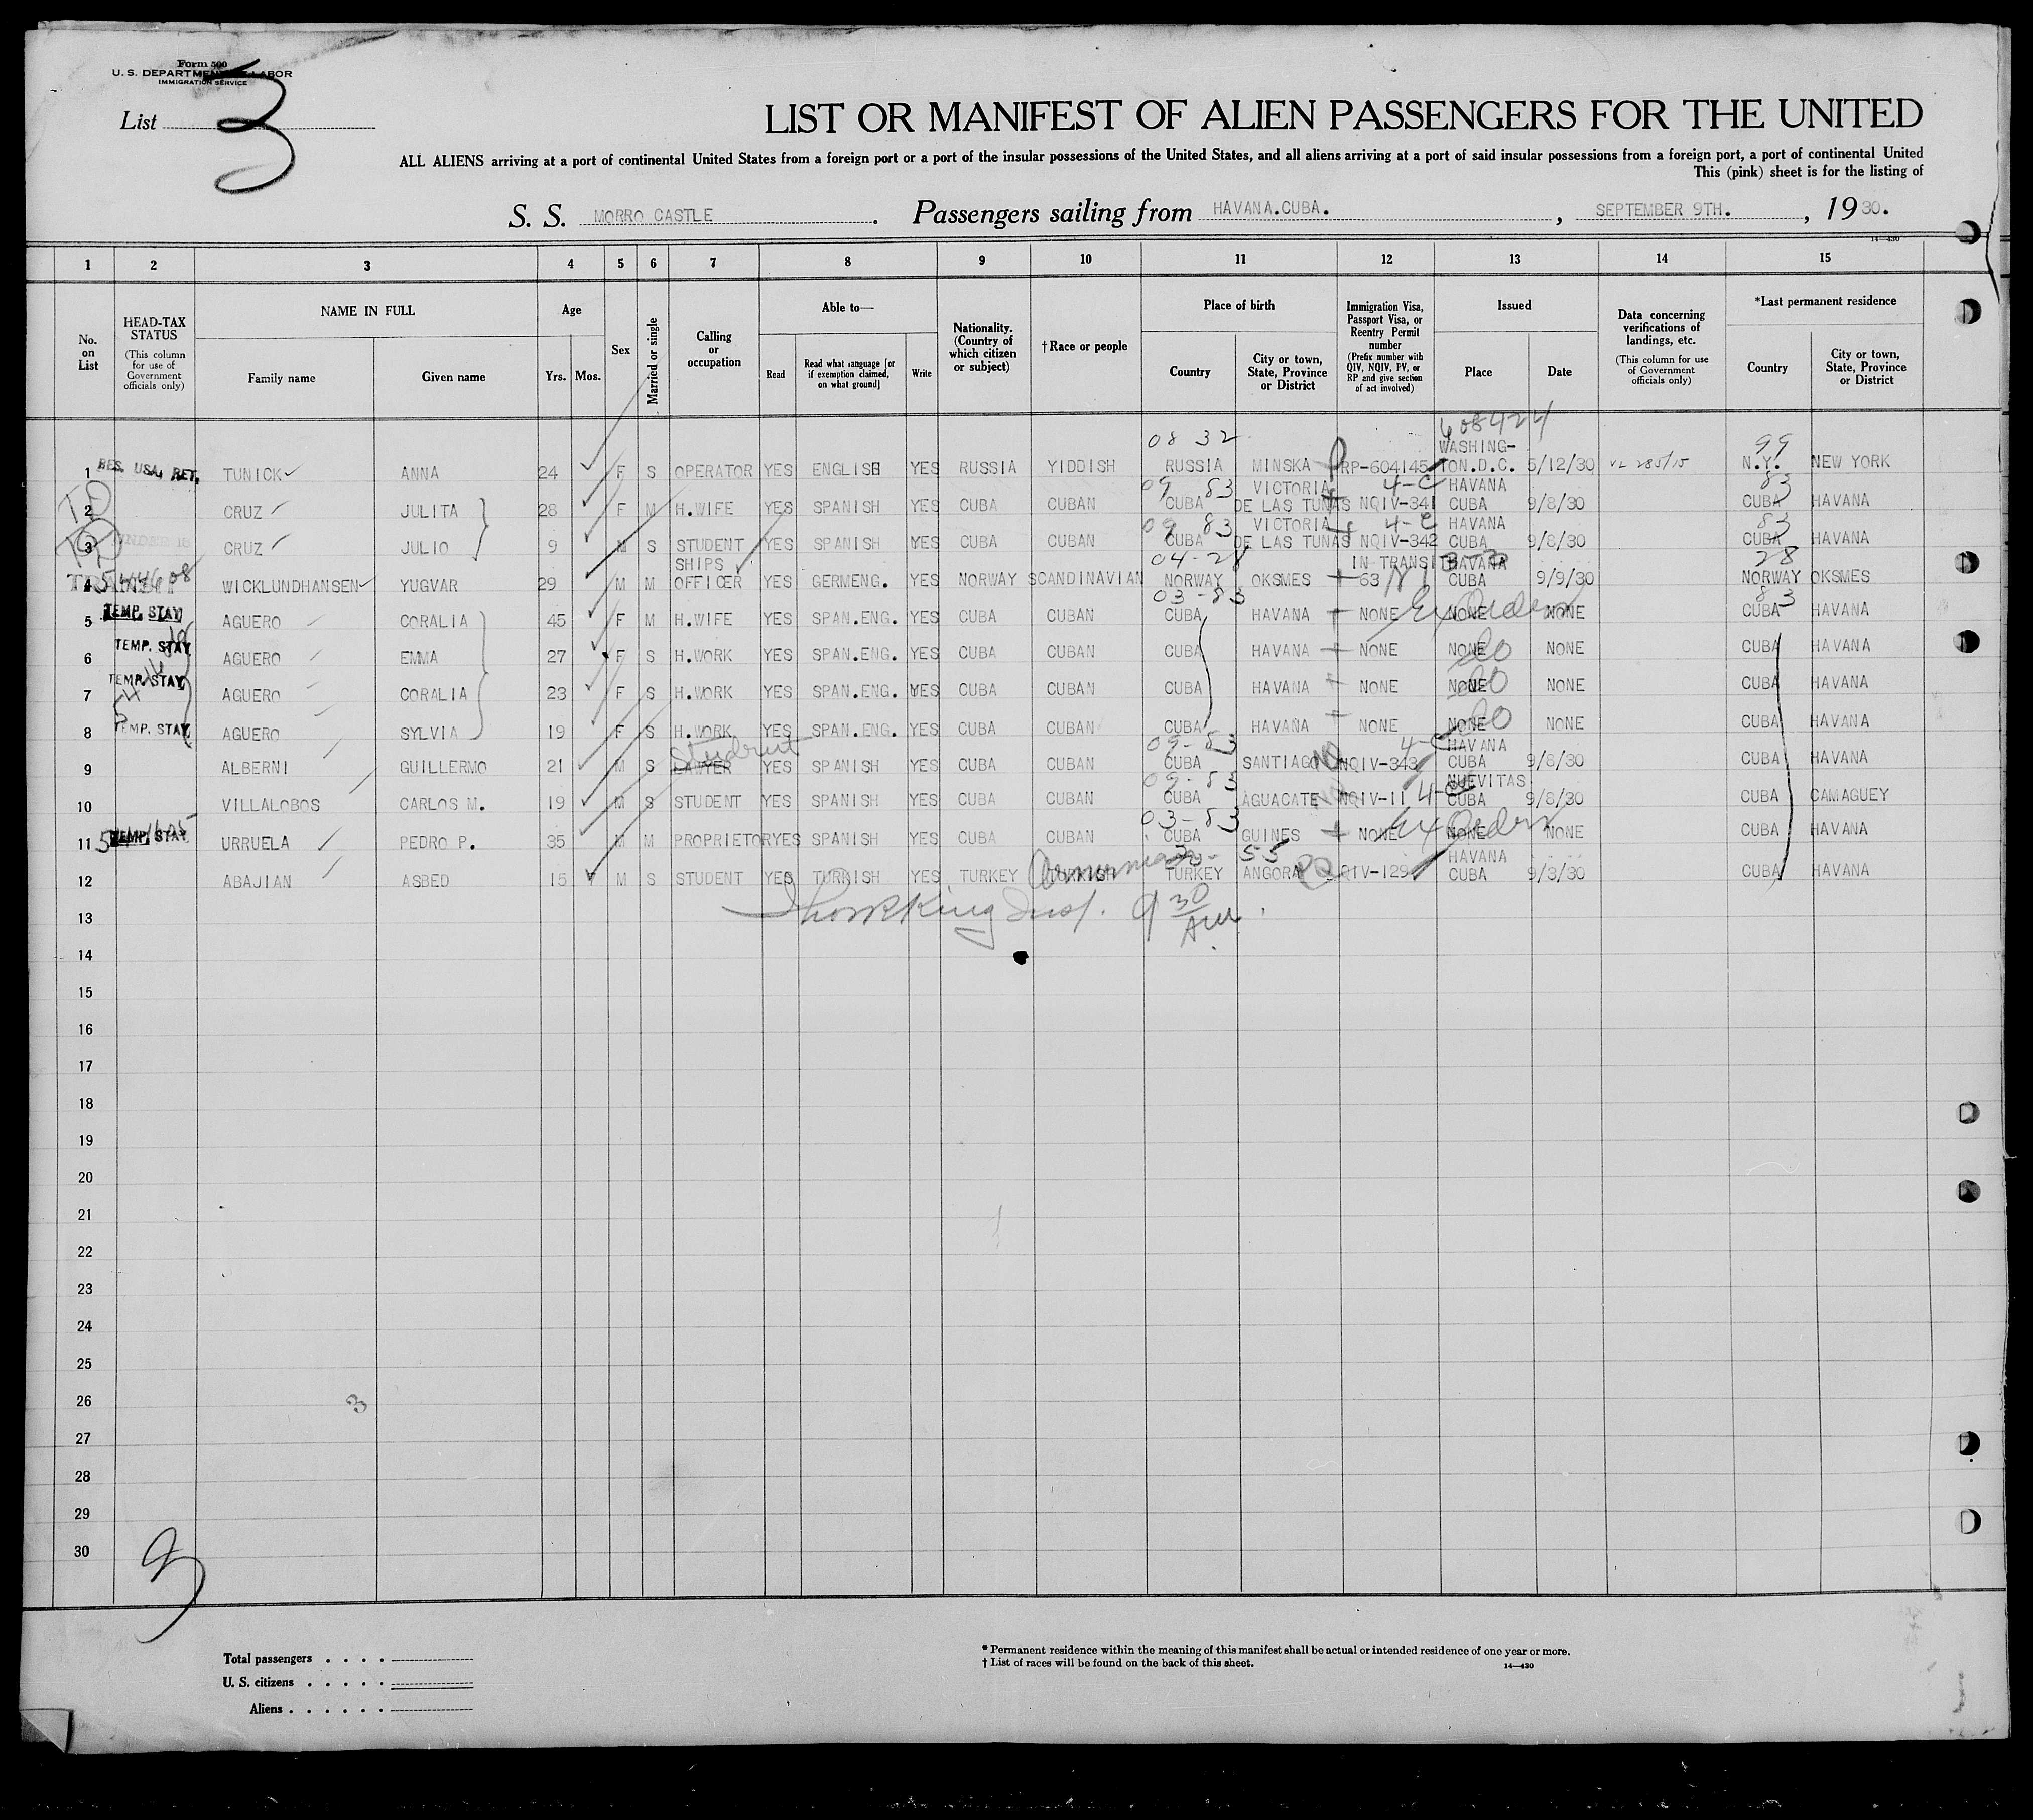 Form 500
U. S. DEPARTMENT OF LABOR
IMMIGRATION SERVICE
List 3
LIST OR MANIFEST OF ALIEN PASSENGERS FOR THE UNITED
ALL ALIENS arriving at a port of continental United States from a foreign port or a port of the insular possessions of the United States, and all aliens arriving at a port of said insular possessions from a foreign port, a port of continental United
This (pink) sheet is for the listing of
S. S. MORRO CASTLE. Passengers sailing from HAVANA.CUBA., SEPTEMBER 9TH., 1930.
14—430
1 2 3 4 5 6 7 8 9 10 11 12 13 14 15
No. on List
HEAD-TAX STATUS (This column for use of Government officials only)
NAME IN FULL
Family name
Given name
Age
Yrs. Mos.
Sex
Married or single
Calling or occupation
Able to—
Read
Read what language [or if exemption claimed, on what ground]
Write
Nationality. (Country of which citizen or subject)
† Race or people
Place of birth
Country
City or town, State, Province or District
Immigration Visa, Passport Visa, or Reentry Permit number (Prefix number with QIV, NQIV, PV, or RP and give section of act involved)
Issued
Place
Date
Data concerning verifications of landings, etc. (This column for use of Government officials only)
*Last permanent residence
Country
City or town, State, Province or District
08 32 608424 99
1 RES. USA, RET. TUNICK ANNA 24 F S OPERATOR YES ENGLISH YES RUSSIA YIDDISH RUSSIA MINSKA RP-604145 WASHING-TON.D.C. 5/12/30 N.Y. NEW YORK
09 83 4-C 83
2 CRUZ JULITA 28 F M H.WIFE YES SPANISH YES CUBA CUBAN CUBA VICTORIA DE LAS TUNAS NQIV-341 HAVANA CUBA 9/8/30 CUBA HAVANA
09 83 4-C 83
3 CRUZ JULIO 9 M S STUDENT YES SPANISH YES CUBA CUBAN CUBA VICTORIA DE LAS TUNAS NQIV-342 HAVANA CUBA 9/8/30 CUBA HAVANA
04-28 28
4 WICKLUNDHANSEN YUGVAR 29 M M SHIPS OFFICER YES GERMENG. YES NORWAY SCANDINAVIAN NORWAY OKSMES IN TRANSIT 63 HAVANA CUBA 9/9/30 NORWAY OKSMES
03-83 Ex Orders 83
5 TEMP. STAY AGUERO CORALIA 45 F M H.WIFE YES SPAN.ENG. YES CUBA CUBAN CUBA HAVANA NONE NONE NONE CUBA HAVANA
6 TEMP. STAY AGUERO EMMA 27 F S H.WORK YES SPAN.ENG. YES CUBA CUBAN CUBA HAVANA NONE NONE do NONE CUBA HAVANA
7 TEMP. STAY AGUERO CORALIA 23 F S H.WORK YES SPAN.ENG. YES CUBA CUBAN CUBA HAVANA NONE NONE do NONE CUBA HAVANA
8 TEMP. STAY AGUERO SYLVIA 19 F S H.WORK YES SPAN.ENG. YES CUBA CUBAN CUBA HAVANA NONE NONE do NONE CUBA HAVANA
Student 09-83 4-C
9 ALBERNI GUILLERMO 21 M S LAWYER YES SPANISH YES CUBA CUBAN CUBA SANTIAGO NQIV-343 HAVANA CUBA 9/8/30 CUBA HAVANA
09-83 4-C
10 VILLALOBOS CARLOS M. 19 M S STUDENT YES SPANISH YES CUBA CUBAN CUBA AGUACATE NQIV-11 NUEVITAS CUBA 9/8/30 CUBA CAMAGUEY
03-83 Ex Orders
11 TEMP. STAY URRUELA PEDRO P. 35 M M PROPRIETOR YES SPANISH YES CUBA CUBAN CUBA GUINES NONE NONE NONE CUBA HAVANA
Armenian 55
12 ABAJIAN ASBED 15 M S STUDENT YES TURKISH YES TURKEY TURKISH TURKEY ANGORA QIV-129 HAVANA CUBA 9/3/30 CUBA HAVANA
13 Insp. 9 30 AM.
14
15
16
17
18
19
20
21
22
23
24
25
26 3
27
28
29
30
Total passengers
U. S. citizens
Aliens
* Permanent residence within the meaning of this manifest shall be actual or intended residence of one year or more.
† List of races will be found on the back of this sheet.
14—430